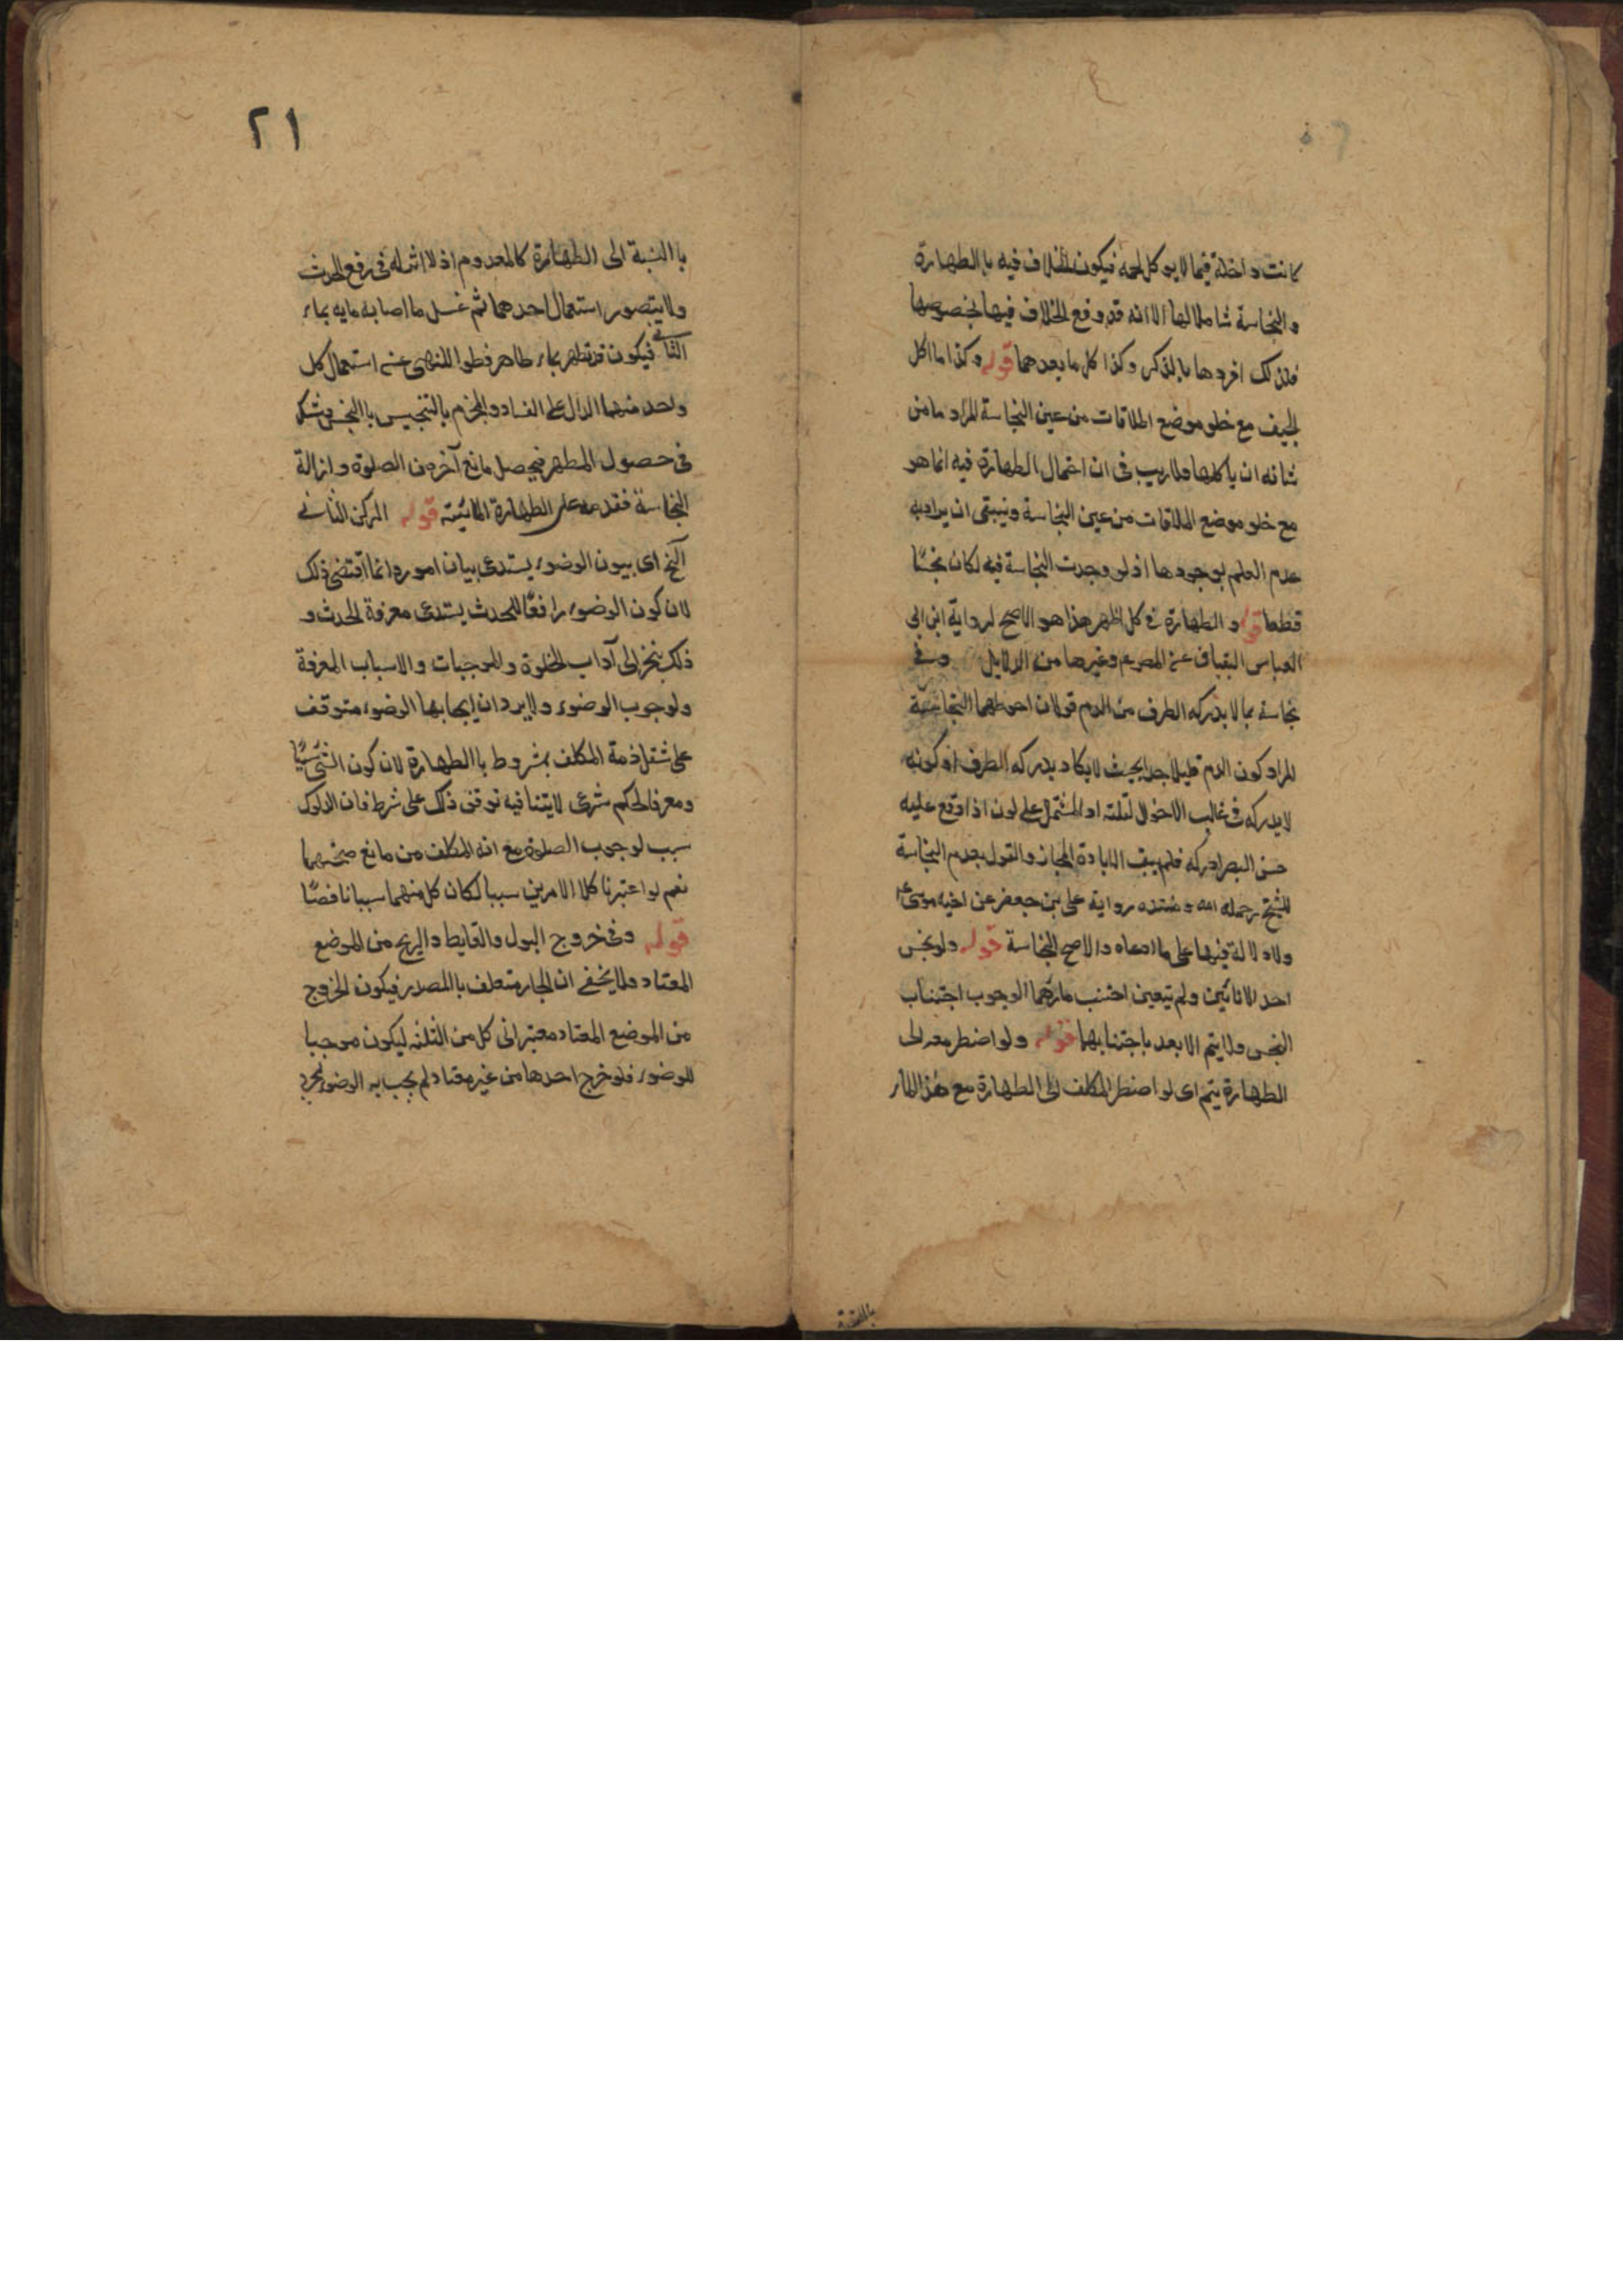 كانت داخلة فيما لا يوكل لحمه فيكون الخلاف فيه بالطهارة
والنجاسة شاملا لها الا انه قد وقع الخلاف فيها بخصوصها
فلذلك افردها بالذكر وكذا كل ما بعدهما قوله وكذا ما اكل
الجيف مع خلو موضع الملاقات من عين النجاسة المراد ما من
شانه ان ياكلها ولا ريب في ان احتمال الطهارة فيه انما هو
مع خلو موضع الملاقات من عين النجاسة وينبغي ان يراد به
عدم العلم بوجودها اذ لو وجدت النجاسة فيه لكان نجسًا
قطعا قوله والطهارة في كل اظهر هذا هو الاصح لرواية ابن ابي
العباس البقباق عن المصوم وغيرها من الدلايل وفي
نجاسة بما لا يدركه الطرف من الدم قولان احوطهما النجاسة
المراد كون الدم قليلا جدا بحيث لا يكاد يدركه الطرف او كونه
لا يدركه في غالب الاحوال لقلته او المشتمل على لون اذا وقع عليه
حسن البصر ادركه فلم يبق الا بادة المجاز والقول بعدم النجاسة
للشيخ رحمله الله ومستنده رواية على بن جعفر عن اخيه موسى
ولا دلالة فيها على ما ادعاه والاصح النجاسة قوله ولو نجس
احد الانائين ولم يتعين اجتنب ماؤهما لوجوب اجتناب
النجس ولا يتم الا بعد باجتنابهما قوله ولو اضطر معه الى
الطهارة يتم اى لو اضطر المكلف الى الطهارة مع هذا الماء
بالنسبة
٢١
با النسبة الى الطهارة كالمعدوم اذ لا اثر له في رفع الحدث
ولا يتصور استعمال احدهما ثم غسل ما اصابه مايه بماء
الثاني فيكون قد تطهر بماء طاهر قطعا للنهى عن استعمال كل
واحد منهما الدال على الفساد والجزم بالتنجيس با النجس
في حصول المطهر فيحصل مانع آخر من الصلوة وازالة
النجاسة فقدمه على الطهارة المائيته قوله الركن الثاني
آلخ اى بيون الوضوء يستدعى بيان امور وانما اقتضى ذلك
لان كون الوضوء رافعًا للحدث يستدعى معرفة الحدث و
ذلك ينجر الى آداب الخلوة والموجبات والاسباب المعرفة
ولوجوب الوضوء ولا يرد ان ايجابها الوضوء متوقف
على شغل ذمة المكلف بمشروط با الطهارة لان كون الشئ سببًا
ومعرفا لحكم شرعى لا يتنافيه توقف ذلك على شرط فان الدلوك
سبب لوجوب الصلوة مع انه المكلف من مانع
نعم لو اعتبرنا كلا الامرين سببا لكان كل منهما سببا ناقصًا
قوله وفي خروج البول والغايط والريح من الموضع
المعتاد ولا يخفى ان الجار متعلف با المصدر فيكون الخروج
من الموضع المعتاد معتبرا في كل من الثلثة ليكون موجبا
للوضوء فلو خرج احدها من غير معتاد لم يجب به الوضوء